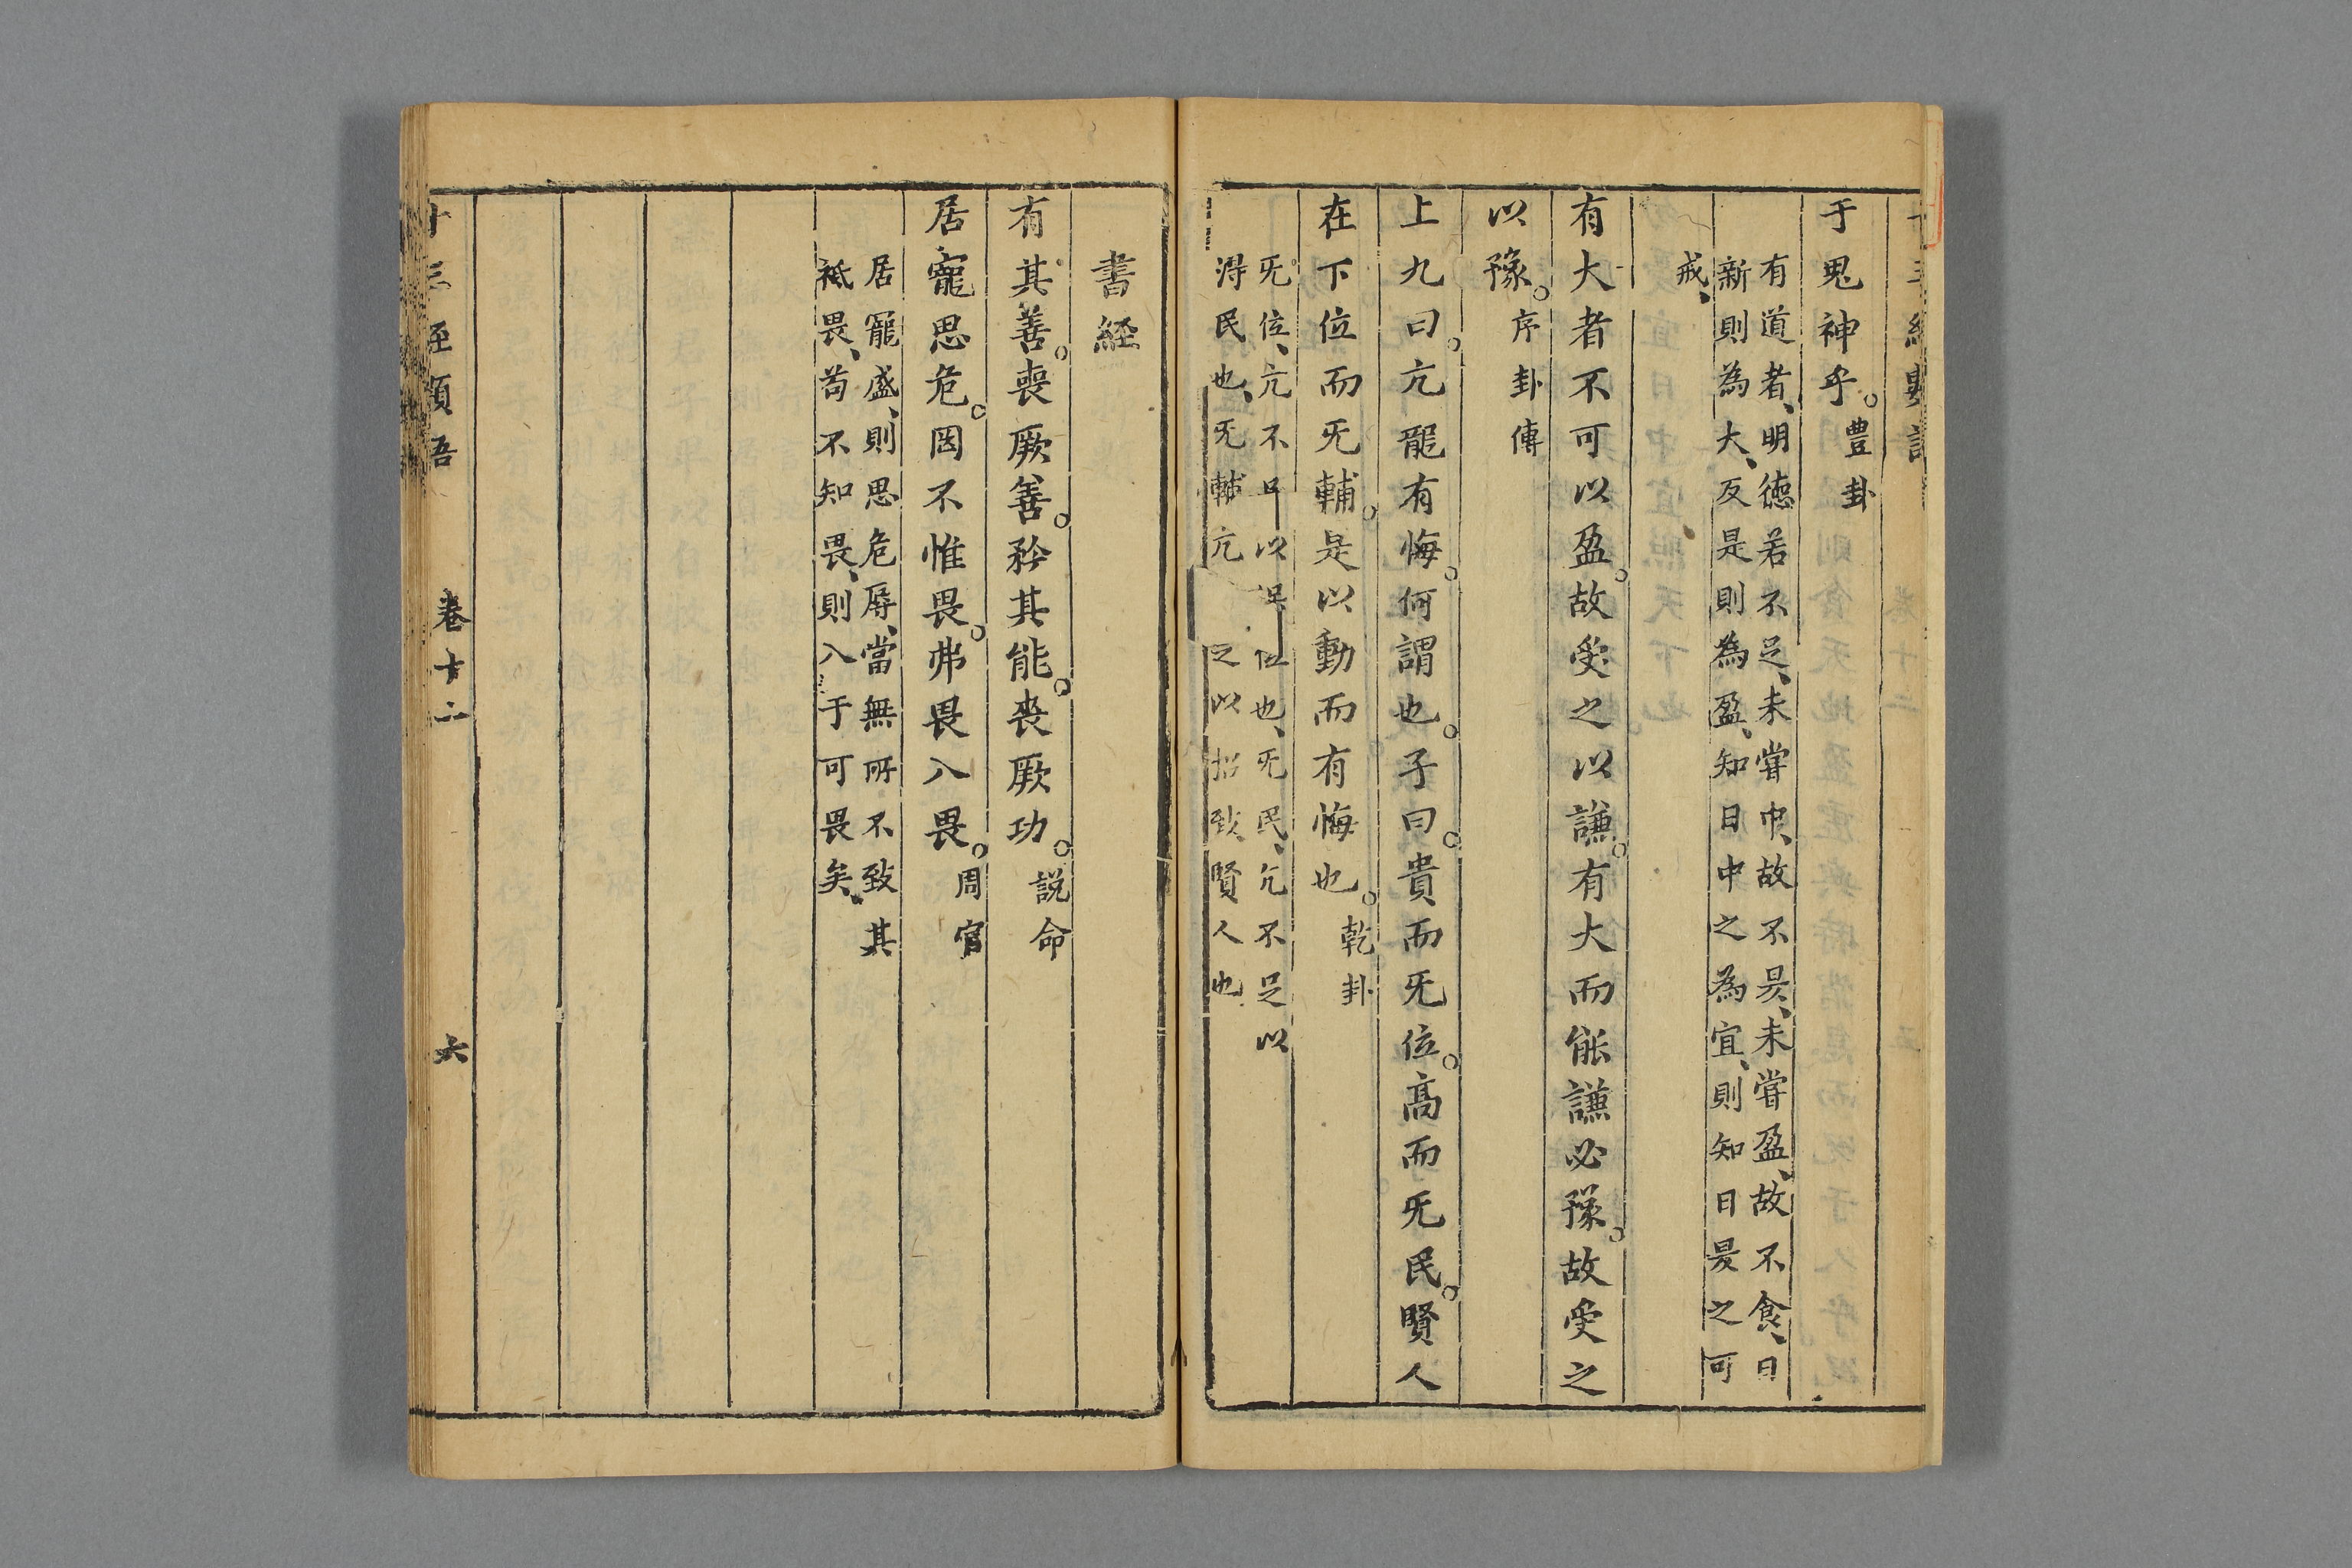 于鬼神乎。豊卦
有道者、明徳若不足、未甞中、故不昃、未甞盈、故不食、日
新則為大、反是則為盈、知日中之為宜、則知日昃之可
戒、
有大者不可以盈。故受之以謙。有大而能謙必豫。故受之
以豫。序卦傳
上九曰。亢龍有悔。何謂也。子曰。貴而旡位。高而旡民。賢人
在下位而旡輔。是以動而有悔也。乾卦
旡位、亢不足以 位也、旡民、亢不足以
淂民也、旡輔亢 之以招致賢人也
書経
有其善。喪厥善。矜其能。喪厥功。説命
居寵思危。罔不惟畏。弗畏入畏。周官
居寵盛、則思危辱、當無所不致其
祗畏、苟不知畏、則入于可畏矣、
十三經類語 卷十二 六